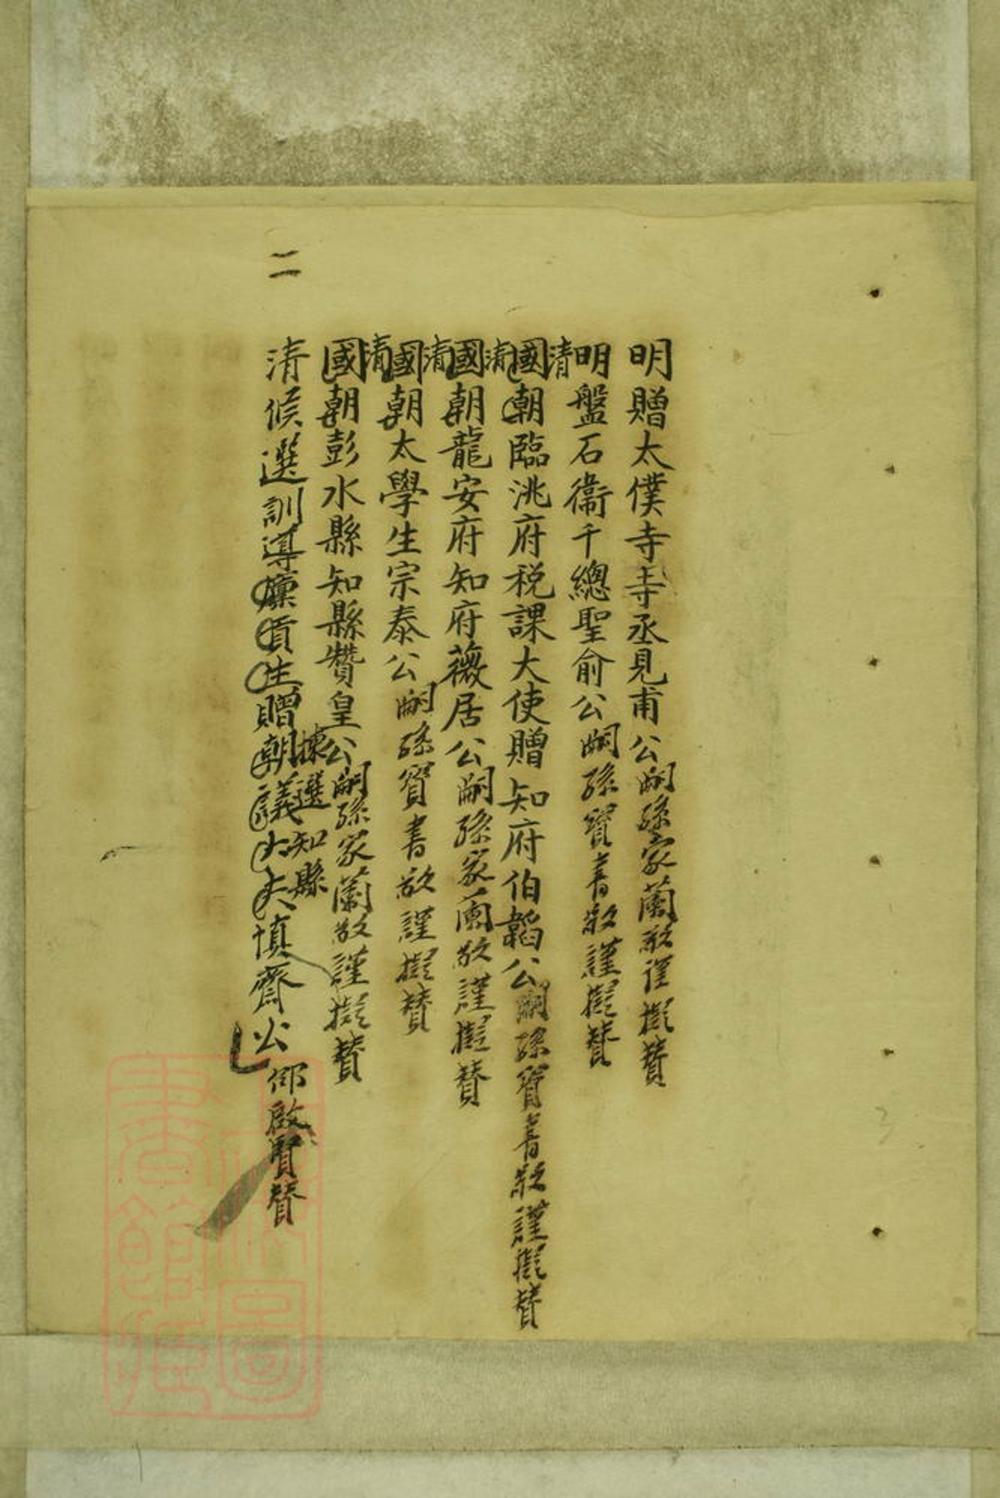 明贈太僕寺寺丞見甫公嗣孫家蘭敬謹擬贊
明盤石衞千總聖俞公嗣孫寶書敬謹擬贊
清國朝臨洮府税課大使贈知府伯韜公嗣孫寶書敬謹擬贊
清國朝龍安府知府薇居公嗣孫家蘭敬謹擬贊
清國朝太學生宗泰公嗣孫寶書敬謹擬贊
清國朝彭水縣知縣贊皇公嗣孫家蘭敬謹擬贊
揀選知縣
清候選訓導廩貢生贈朝議大夫慎齋公邵啟賢贊
二
圖書館藏